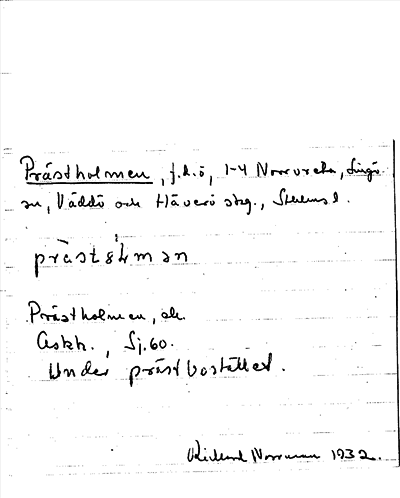 Prästholmen, f.d.ö, 1-4 Norrveda, Singö
sn, Väddö och Häverö skg., Sthlms l.
prä̀stɷ́lmən
Prästholmen, ek.
Askh., Sj.60.
Under prästbostället.
Rickard Norrman 1932.